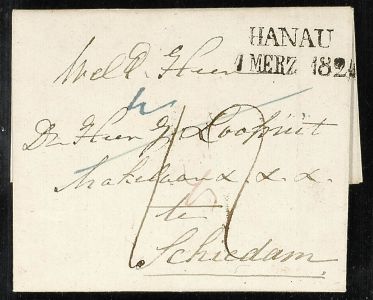 HANAU
1 MERZ 182
Wel Ed. Heer
De Heer J. Loopuit
Makelaar &. &. &.
te
Schiedam